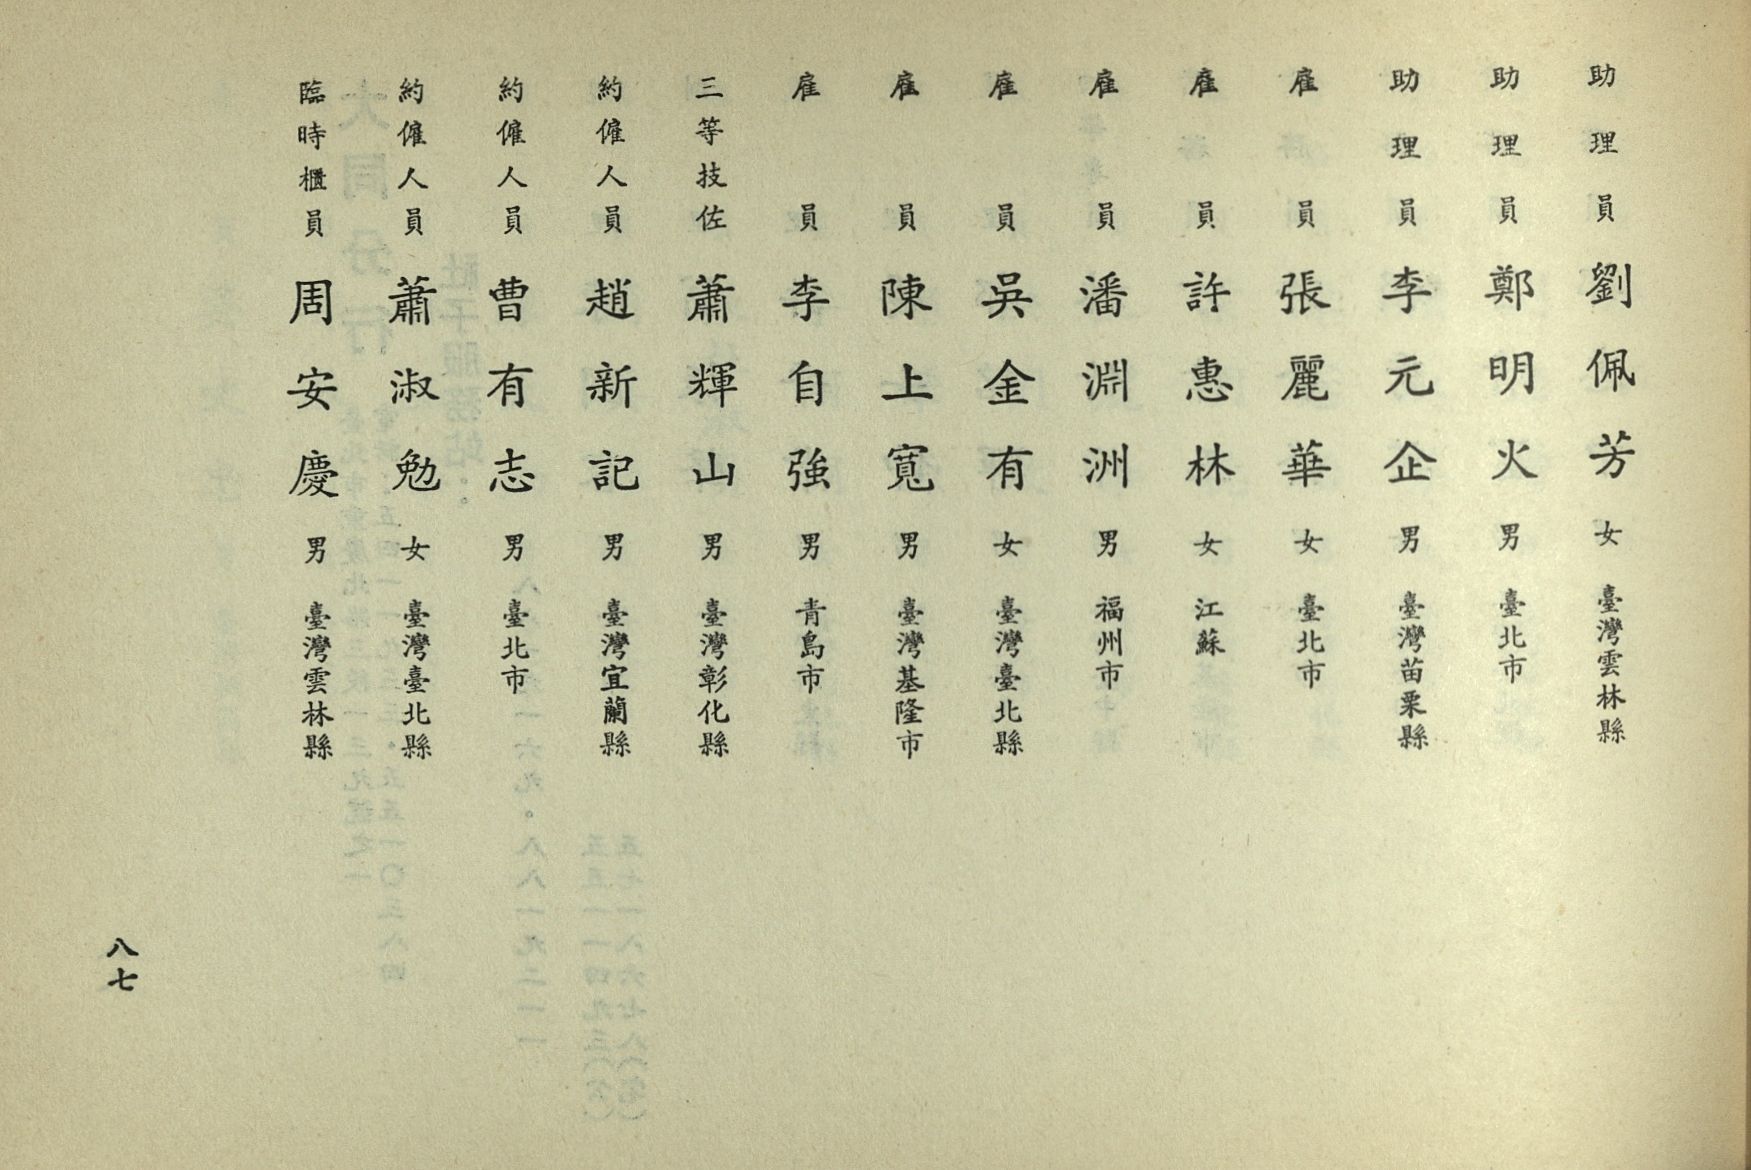 助理員劉佩芳女臺灣雲林縣
助理員鄭明火男臺北市
助理員李元企男臺灣苗栗縣
雇員張麗華女臺北市
雇員許惠林女江蘇
雇員潘淵洲男福州市
雇員吳金有女臺灣臺北縣
雇員陳上寬男臺灣基隆市
雇員李自強男青島市
三等技佐蕭輝山男臺灣彰化縣
約僱人員趙新記男臺灣宜蘭縣
約僱人員曹有志男臺北市
約僱人員蕭淑勉女臺灣臺北縣
臨時櫃員周安慶男臺灣雲林縣
八七